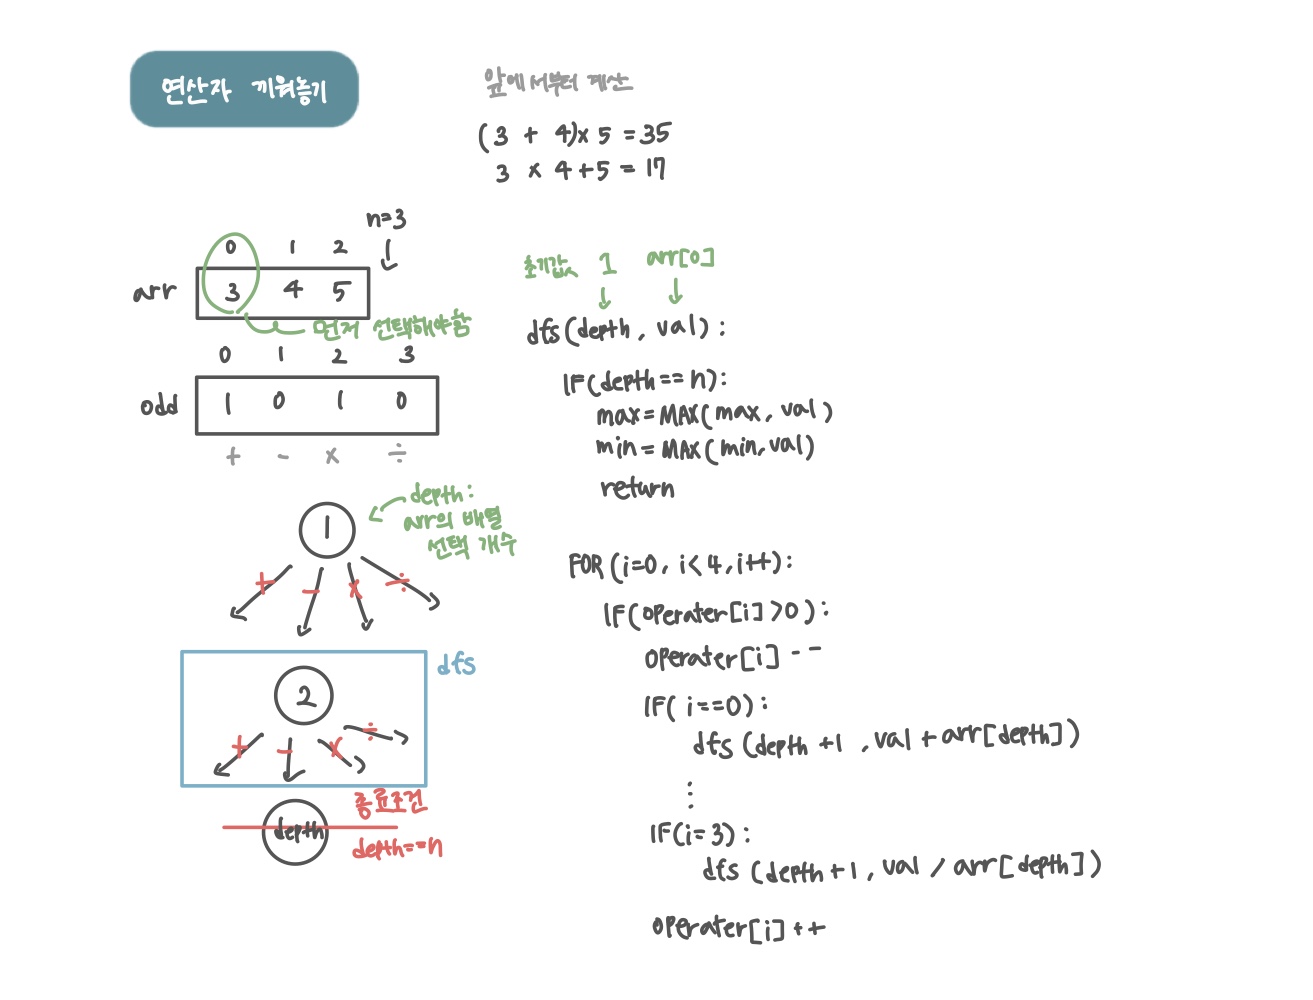 연산자 끼워놓기
앞에서부터 계산
(3 + 4)× 5 = 35
3 × 4 + 5 = 17
n=3
0 1 2
arr 3 4 5
먼저 선택해야함
0 1 2 3
odd 1 0 1 0
+ - × ÷
1
depth :
arr의 배열
선택 개수
+ - × ÷
dfs
2
+ - × ÷
종료조건
depth
depth==n
초기값 1 arr[0]
dfs(depth, val) :
IF(depth == n):
max = MAX(max, val)
min = MAX(min, val)
return
FOR (i=0, i<4, i++):
IF(operater[i]>0):
operater[i] --
IF( i==0):
dfs (depth +1, val + arr[depth])
⋮
IF(i=3):
dfs (depth+1, val / arr[depth])
operater[i]++